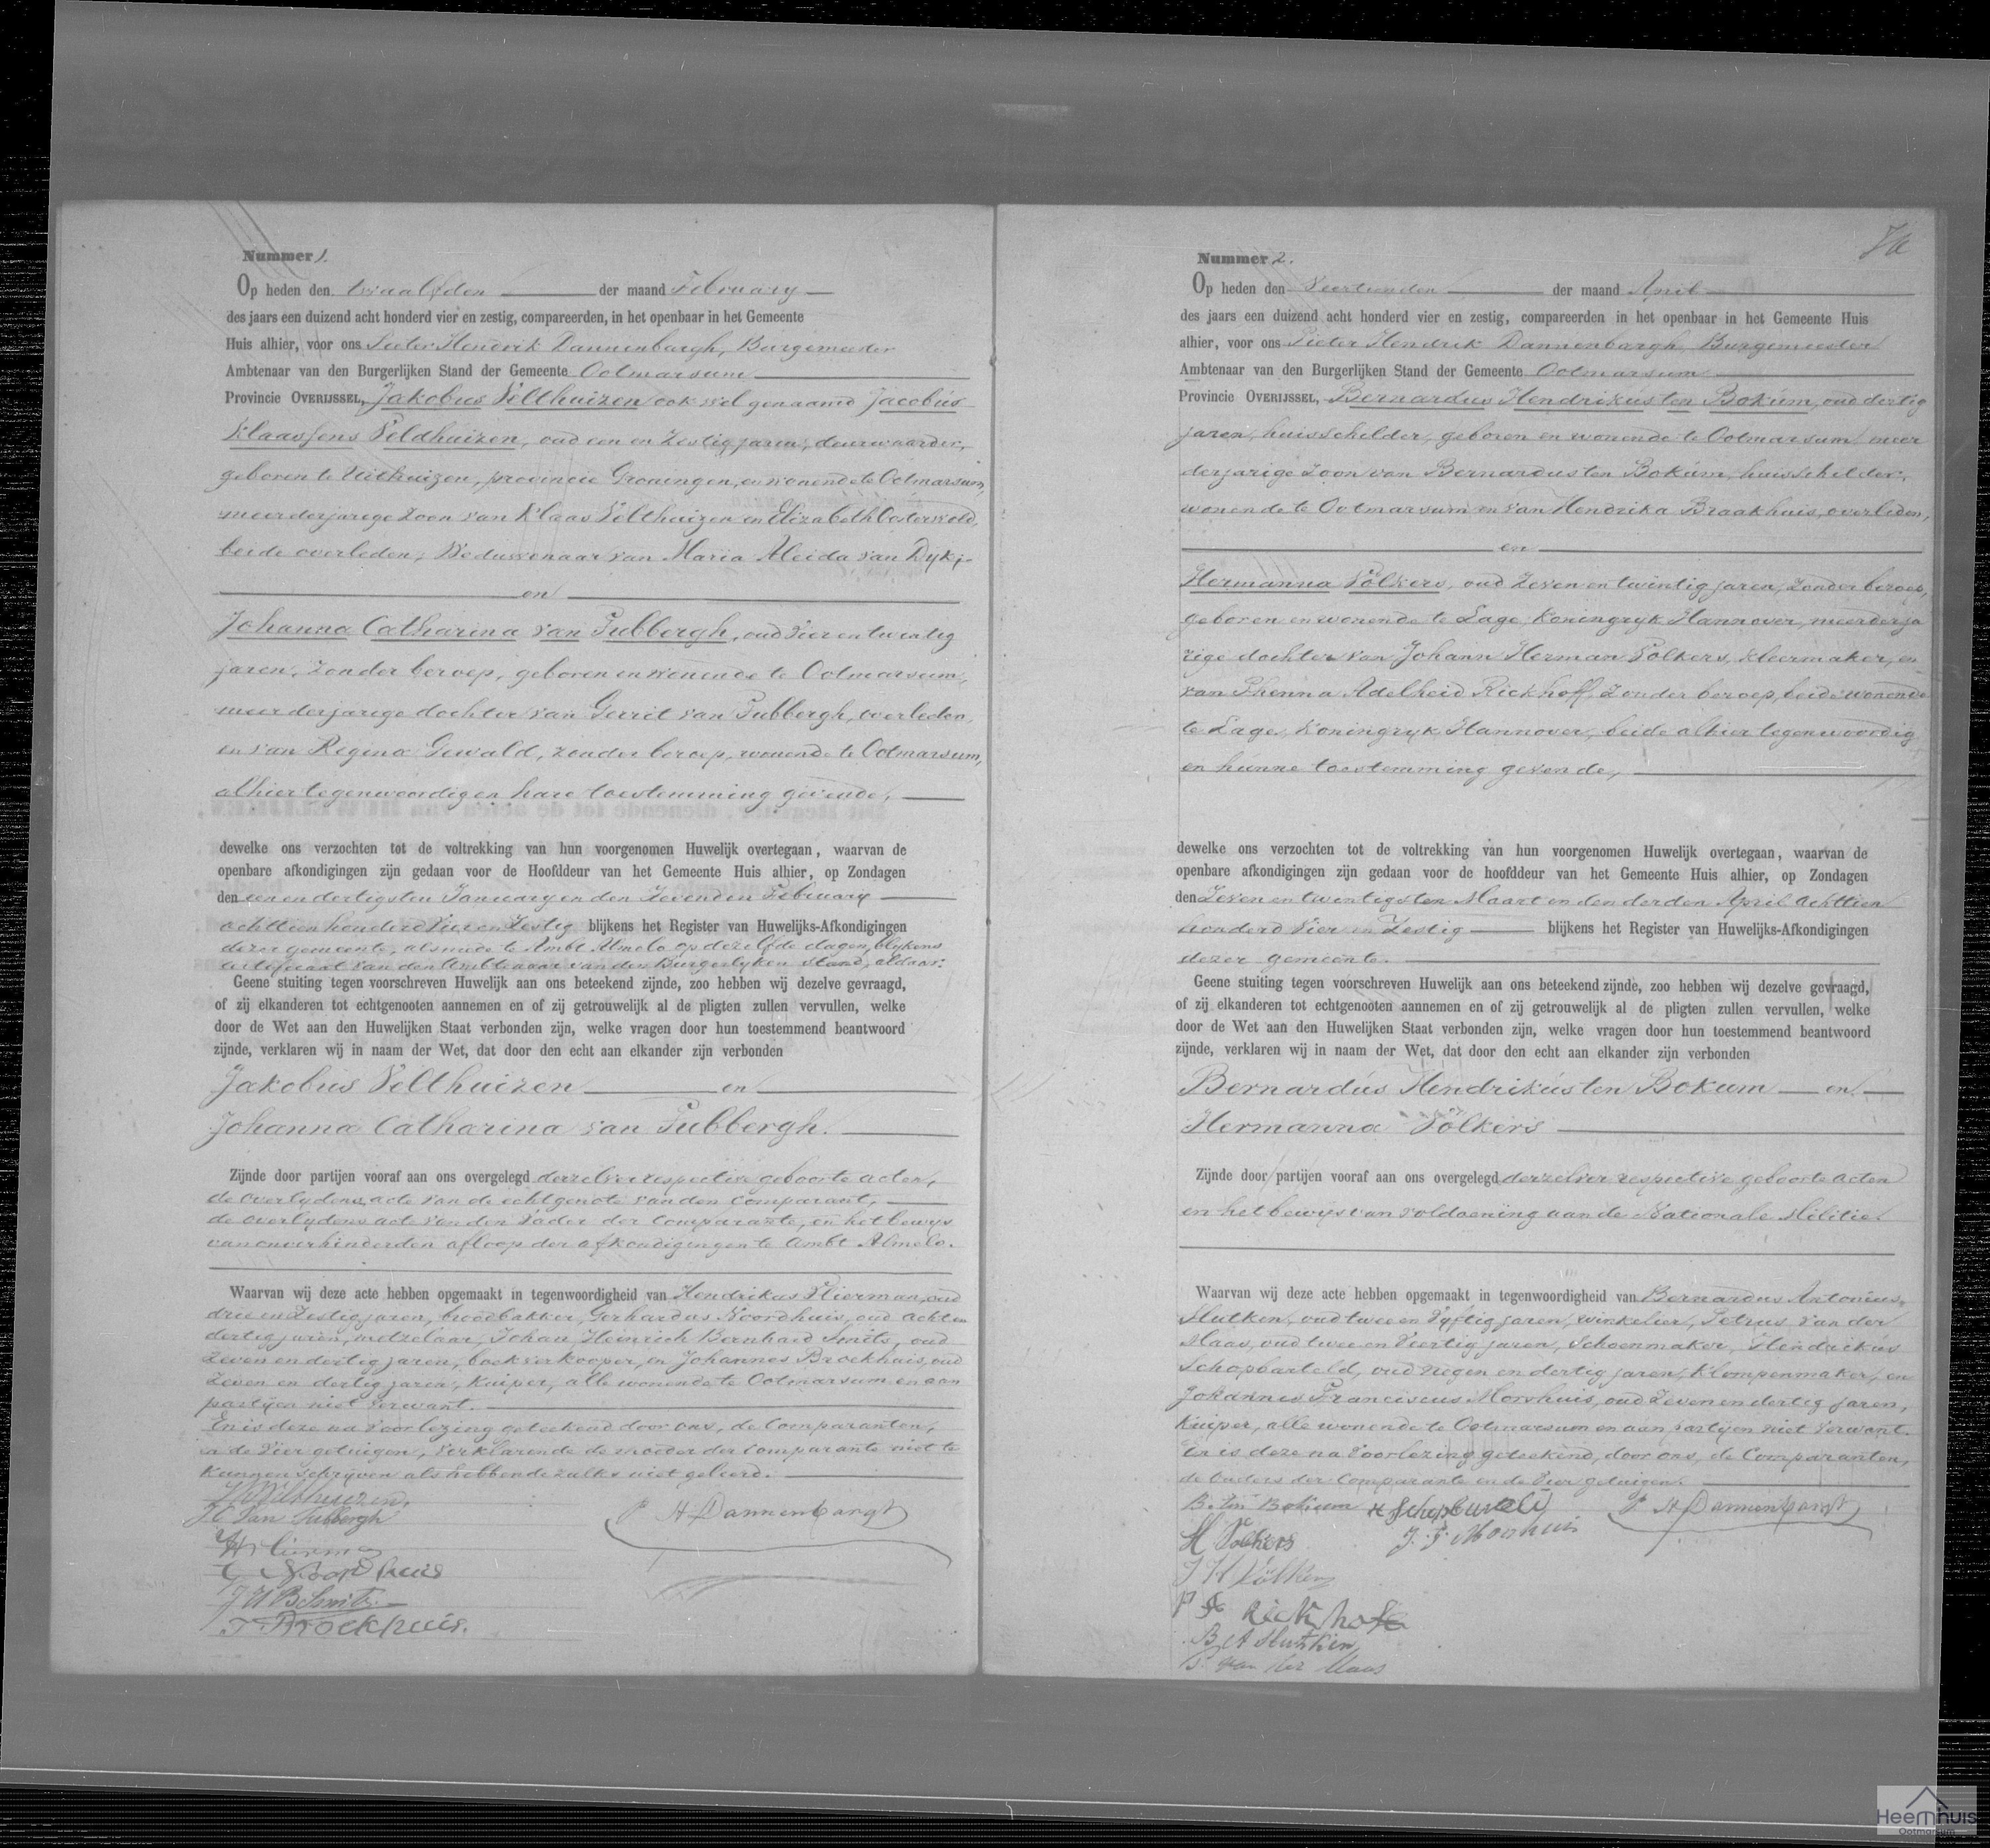 Nummer 1.
Op heden den twaalfden der maand February
des jaars een duizend acht honderd vier en zestig, compareerden, in het openbaar in het Gemeente
Huis alhier, voor ons Pieter Hendrik Dannenbargh, Burgemeester
Ambtenaar van den Burgerlijken Stand der Gemeente Ootmarsum
Provincie OVERIJSSEL, Jakobus Velthuizen ook wel genaamd Jacobus
Klaassens Veldhuizen, oud een en zestig jaren, deurwaarder,
geboren te Uithuizen, provincie Groningen, en wonende te Ootmarsum,
meerderjarige zoon van Klaas Velthuizen en Elizabeth Oosterwold,
beide overleden; Weduwenaar van Maria Aleida van Dyk;
en
Johanna Catharina van Tubbergh, oud vier en twintig
jaren, zonder beroep, geboren en wonende te Ootmarsum,
meerderjarige dochter van Gerrit van Tubbergh, overleden,
en van Regina Gewald, zonder beroep, wonende te Ootmarsum,
alhier tegenwoordig en hare toestemming gevende,
dewelke ons verzochten tot de voltrekking van hun voorgenomen Huwelijk overtegaan, waarvan de
openbare afkondigingen zijn gedaan voor de Hoofddeur van het Gemeente Huis alhier, op Zondagen
den een en dertigsten January en den Zevenden February
achttien honderd Vier en Zestig blijkens het Register van Huwelijks-Afkondigingen
dezer gemeente, alsmede te Ambt Almelo op dezelfde dagen, blykens
certificaat van den Ambtenaar van den Burgerlyken stand, aldaar.
Geene stuiting tegen voorschreven Huwelijk aan ons beteekend zijnde, zoo hebben wij dezelve gevraagd,
of zij elkanderen tot echtgenooten aannemen en of zij getrouwelijk al de pligten zullen vervullen, welke
door de Wet aan den Huwelijken Staat verbonden zijn, welke vragen door hun toestemmend beantwoord
zijnde, verklaren wij in naam der Wet, dat door den echt aan elkander zijn verbonden
Jakobus Velthuizen en
Johanna Catharina van Tubbergh.
Zijnde door partijen vooraf aan ons overgelegd derzelver respective geboorte acten,
de overlydens acte van de echtgenote van den Comparant,
de overlydens acte van den Vader der Comparante, en het bewys
van onverhinderden afloop der afkondigingen te Ambt Almelo.
Waarvan wij deze acte hebben opgemaakt in tegenwoordigheid van Hendrikus Hierman, oud
drie en Zestig jaren, broodbakker, Gerhardus Noordhuis, oud acht en
dertig jaren, metzelaar, Johan Heinrich Bernhard Smits, oud
Zeven en dertig jaren, boekverkooper, en Johannes Broekhuis, oud
Zeven en dertig jaren, Kuiper, alle wonende te Ootmarsum en aan
partijen niet verwant.
En is deze na Voorlezing geteekend door ons, de Comparanten,
en de Vier getuigen, verklarende de moeder der Comparante niet te
Kunnen schrijven als hebbende zulks niet geleerd.
J Velthuizen.
J C van Tubbergh
P H Dannenbargh
G Noordhuis
J H B Smits
J Broekhuis.
Nummer 2.
Op heden den Veertienden der maand April
des jaars een duizend acht honderd vier en zestig, compareerden in het openbaar in het Gemeente Huis
alhier, voor ons Pieter Hendrik Dannenbargh, Burgemeester
Ambtenaar van den Burgerlijken Stand der Gemeente Ootmarsum
Provincie OVERIJSSEL, Bernardus Hendrikus ten Bokum, oud dertig
jaren, huisschilder, geboren en wonende te Ootmarsum, meer
derjarige zoon van Bernardus ten Bokum, huisschilder,
wonende te Ootmarsum en van Hendrika Braakhuis, overleden,
en
Hermanna Völkers, oud zeven en twintig jaren, zonder beroep,
geboren en wonende te Lage, Koningryk Hannover, meerderja
rige dochter van Johann Herman Völkers, kleermaker, en
van Phenna Adelheid Rickhoff, zonder beroep, beide wonende
te Lage, Koningryk Hannover, beide alhier tegenwoordig
en hunne toestemming gevende,
dewelke ons verzochten tot de voltrekking van hun voorgenomen Huwelijk overtegaan, waarvan de
openbare afkondigingen zijn gedaan voor de hoofddeur van het Gemeente Huis alhier, op Zondagen
den Zeven en twintigsten Maart en den derden April achttien
honderd Vier en Zestig blijkens het Register van Huwelijks-Afkondigingen
dezer gemeente.
Geene stuiting tegen voorschreven Huwelijk aan ons beteekend zijnde, zoo hebben wij dezelve gevraagd,
of zij elkanderen tot echtgenooten aannemen en of zij getrouwelijk al de pligten zullen vervullen, welke
door de Wet aan den Huwelijken Staat verbonden zijn, welke vragen door hun toestemmend beantwoord
zijnde, verklaren wij in naam der Wet, dat door den echt aan elkander zijn verbonden
Bernardus Hendrikus ten Bokum en
Hermanna Völkers
Zijnde door partijen vooraf aan ons overgelegd derzelver respective geboorte acten
en het bewijs van voldoening aan de Nationale Militie.
Waarvan wij deze acte hebben opgemaakt in tegenwoordigheid van Bernardus Antonius
Slutken, oud twee en Vyftig jaren, winkelier, Petrus van der
Maas, oud twee en Veertig jaren, Schoenmaker, Hendrikus
Schopbarteld, oud negen en dertig jaren, Klompenmaker, en
Johannes Franciscus Morshuis, oud Zeven en dertig jaren,
Kuiper, alle wonende te Ootmarsum en aan partijen niet verwant.
En is deze na Voorlezing geteekend, door ons, de Comparanten,
de Ouders der Comparante en de Vier getuigen.
B. ten Bokum
P H Dannenbargh
H Völkers
J. F. Morshuis
J H Völkers
P A Rickhoff
B A Slutken
P. van der Maas
Heemhuis
Ootmarsum